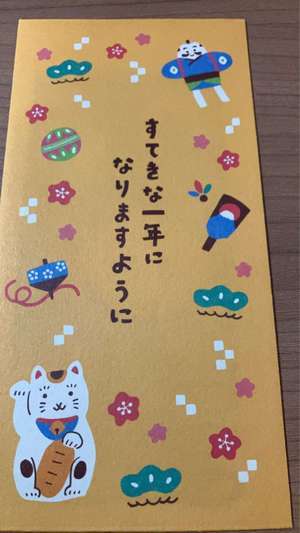 すてきな一年に
なりますように